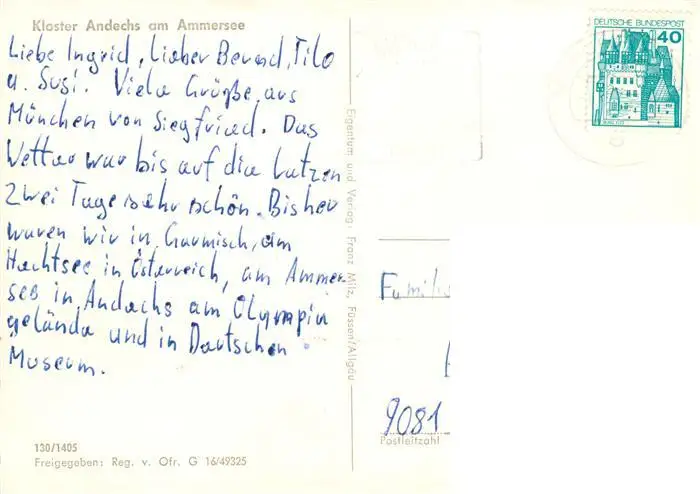 Kloster Andechs am Ammersee
Liebe Ingrid, Lieber Bernd, Tilo
u. Susi. Viele Grüße aus
München von Siegfried. Das
Wetter war bis auf die letzen
zwei Tage sehr schön. Bisher
waren wir in Garmisch, am
Hechtsee in Österreich, am Ammer
see in Andechs am Olympia
gelände und in Deutschen
Museum.
130/1405
Freigegeben: Reg. v. Ofr. G 16/49325
Eigentum und Verlag: Franz Milz, Füssen/Allgäu
DEUTSCHE BUNDESPOST
40
BURG ELTZ
Famili
9081
Postleitzahl